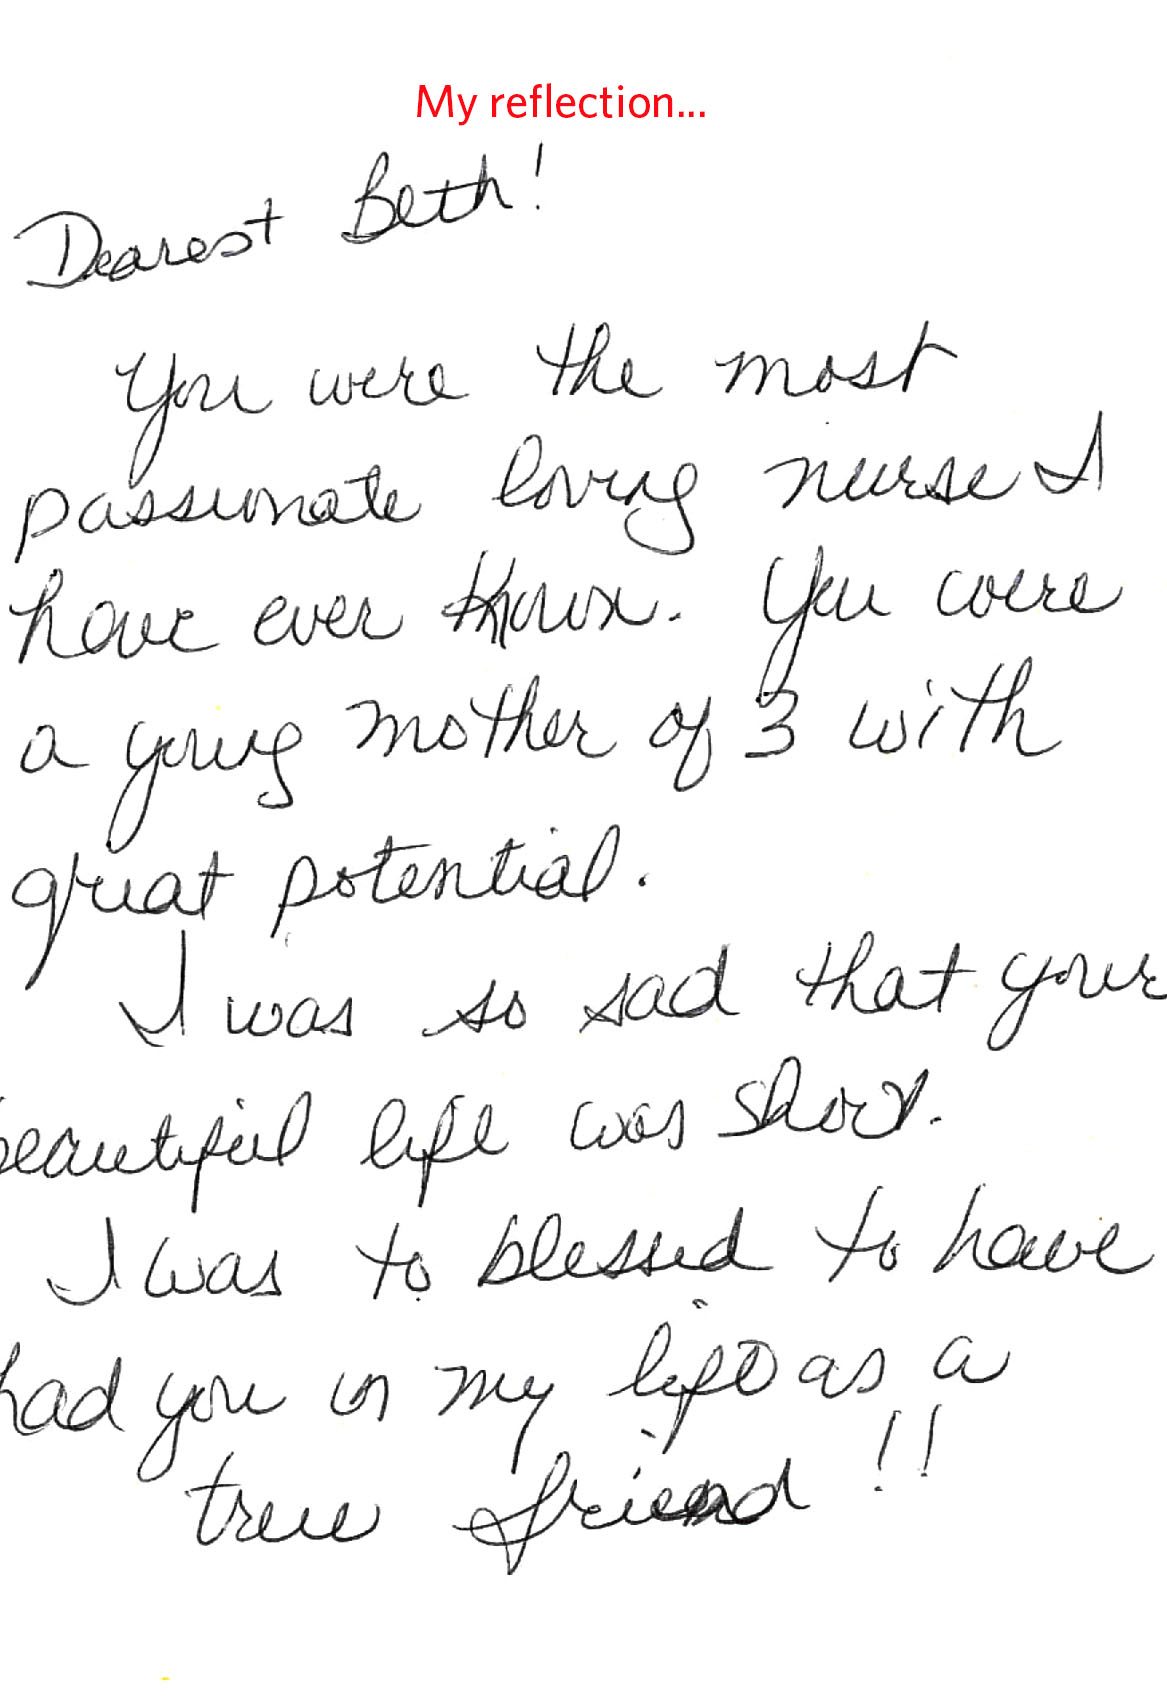 My reflection...
Dearest Beth!
You were the most
passionate loving nurse I
have ever known. You were
a young mother of 3 with
great potential.
I was so sad that your
beautiful life was short.
I was to blessed to have
had you in my life as a
true friend!!